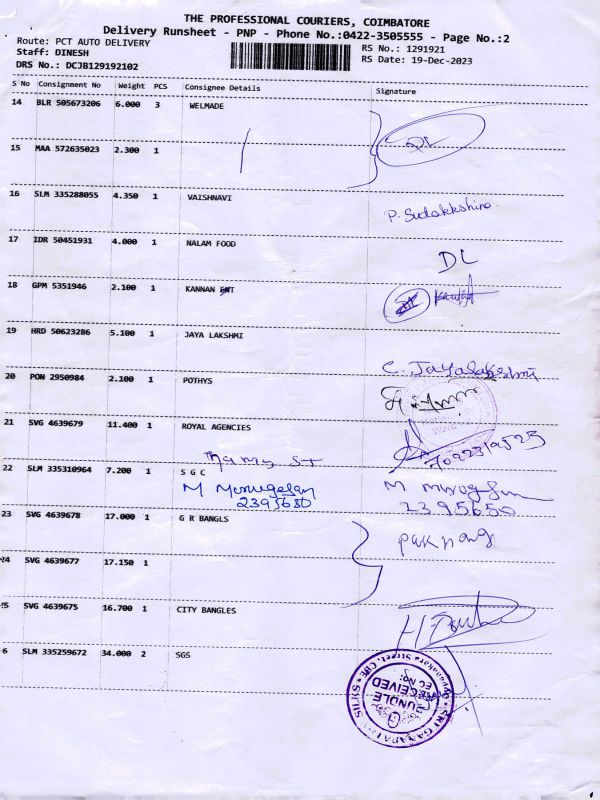 THE PROFESSIONAL COURIERS, COIMBATORE
Delivery Runsheet - PNP - Phone No.:0422-3505555 - Page No.:2
Route: PCT AUTO DELIVERY
Staff: DINESH
DRS No.: DCJB129192102
RS No.: 1291921
RS Date: 19-Dec-2023
S No Consignment No Weight PCS Consignee Details Signature
14 BLR 505673206 6.000 3 WELMADE
15 MAA 572635023 2.300 1
16 SLM 335288055 4.350 1 VAISHNAVI
P. Sudakkshina
17 IDR 50451931 4.000 1 NALAM FOOD
DL
18 GPM 5351946 2.100 1 KANNAN ENT
19 HRD 50623286 5.100 1 JAYA LAKSHMI
C. Jayalakshmi
20 PON 2950984 2.100 1 POTHYS
21 SVG 4639679 11.400 1 ROYAL AGENCIES
22 SLM 335310964 7.200 1 S G C
M Murugesan M Murugesan
2395650 2395650
23 SVG 4639678 17.000 1 G R BANGLS
24 SVG 4639677 17.150 1
25 SVG 4639675 16.700 1 CITY BANGLES
6 SLM 335259672 34.000 2 SGS
SRI GANAPATHY SILKS
BUNDLE
RECEIVED